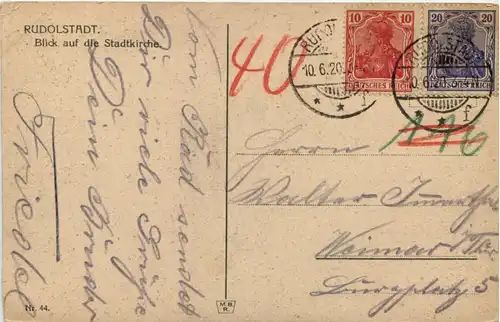 RUDOLSTADT.
Blick auf die Stadtkirche.
Vom Rad sendet
Dir viele Grüße
Dein Bruder
Friedel
Nr. 44.
M.B.
R.
40
10
DEUTSCHES REICH
20
DEUTSCHES REICH
10.6.20
f
RUDOLSTADT
10.6.20
f
116
Herrn
Walter
Weimar i/Thür
Burgplatz 5